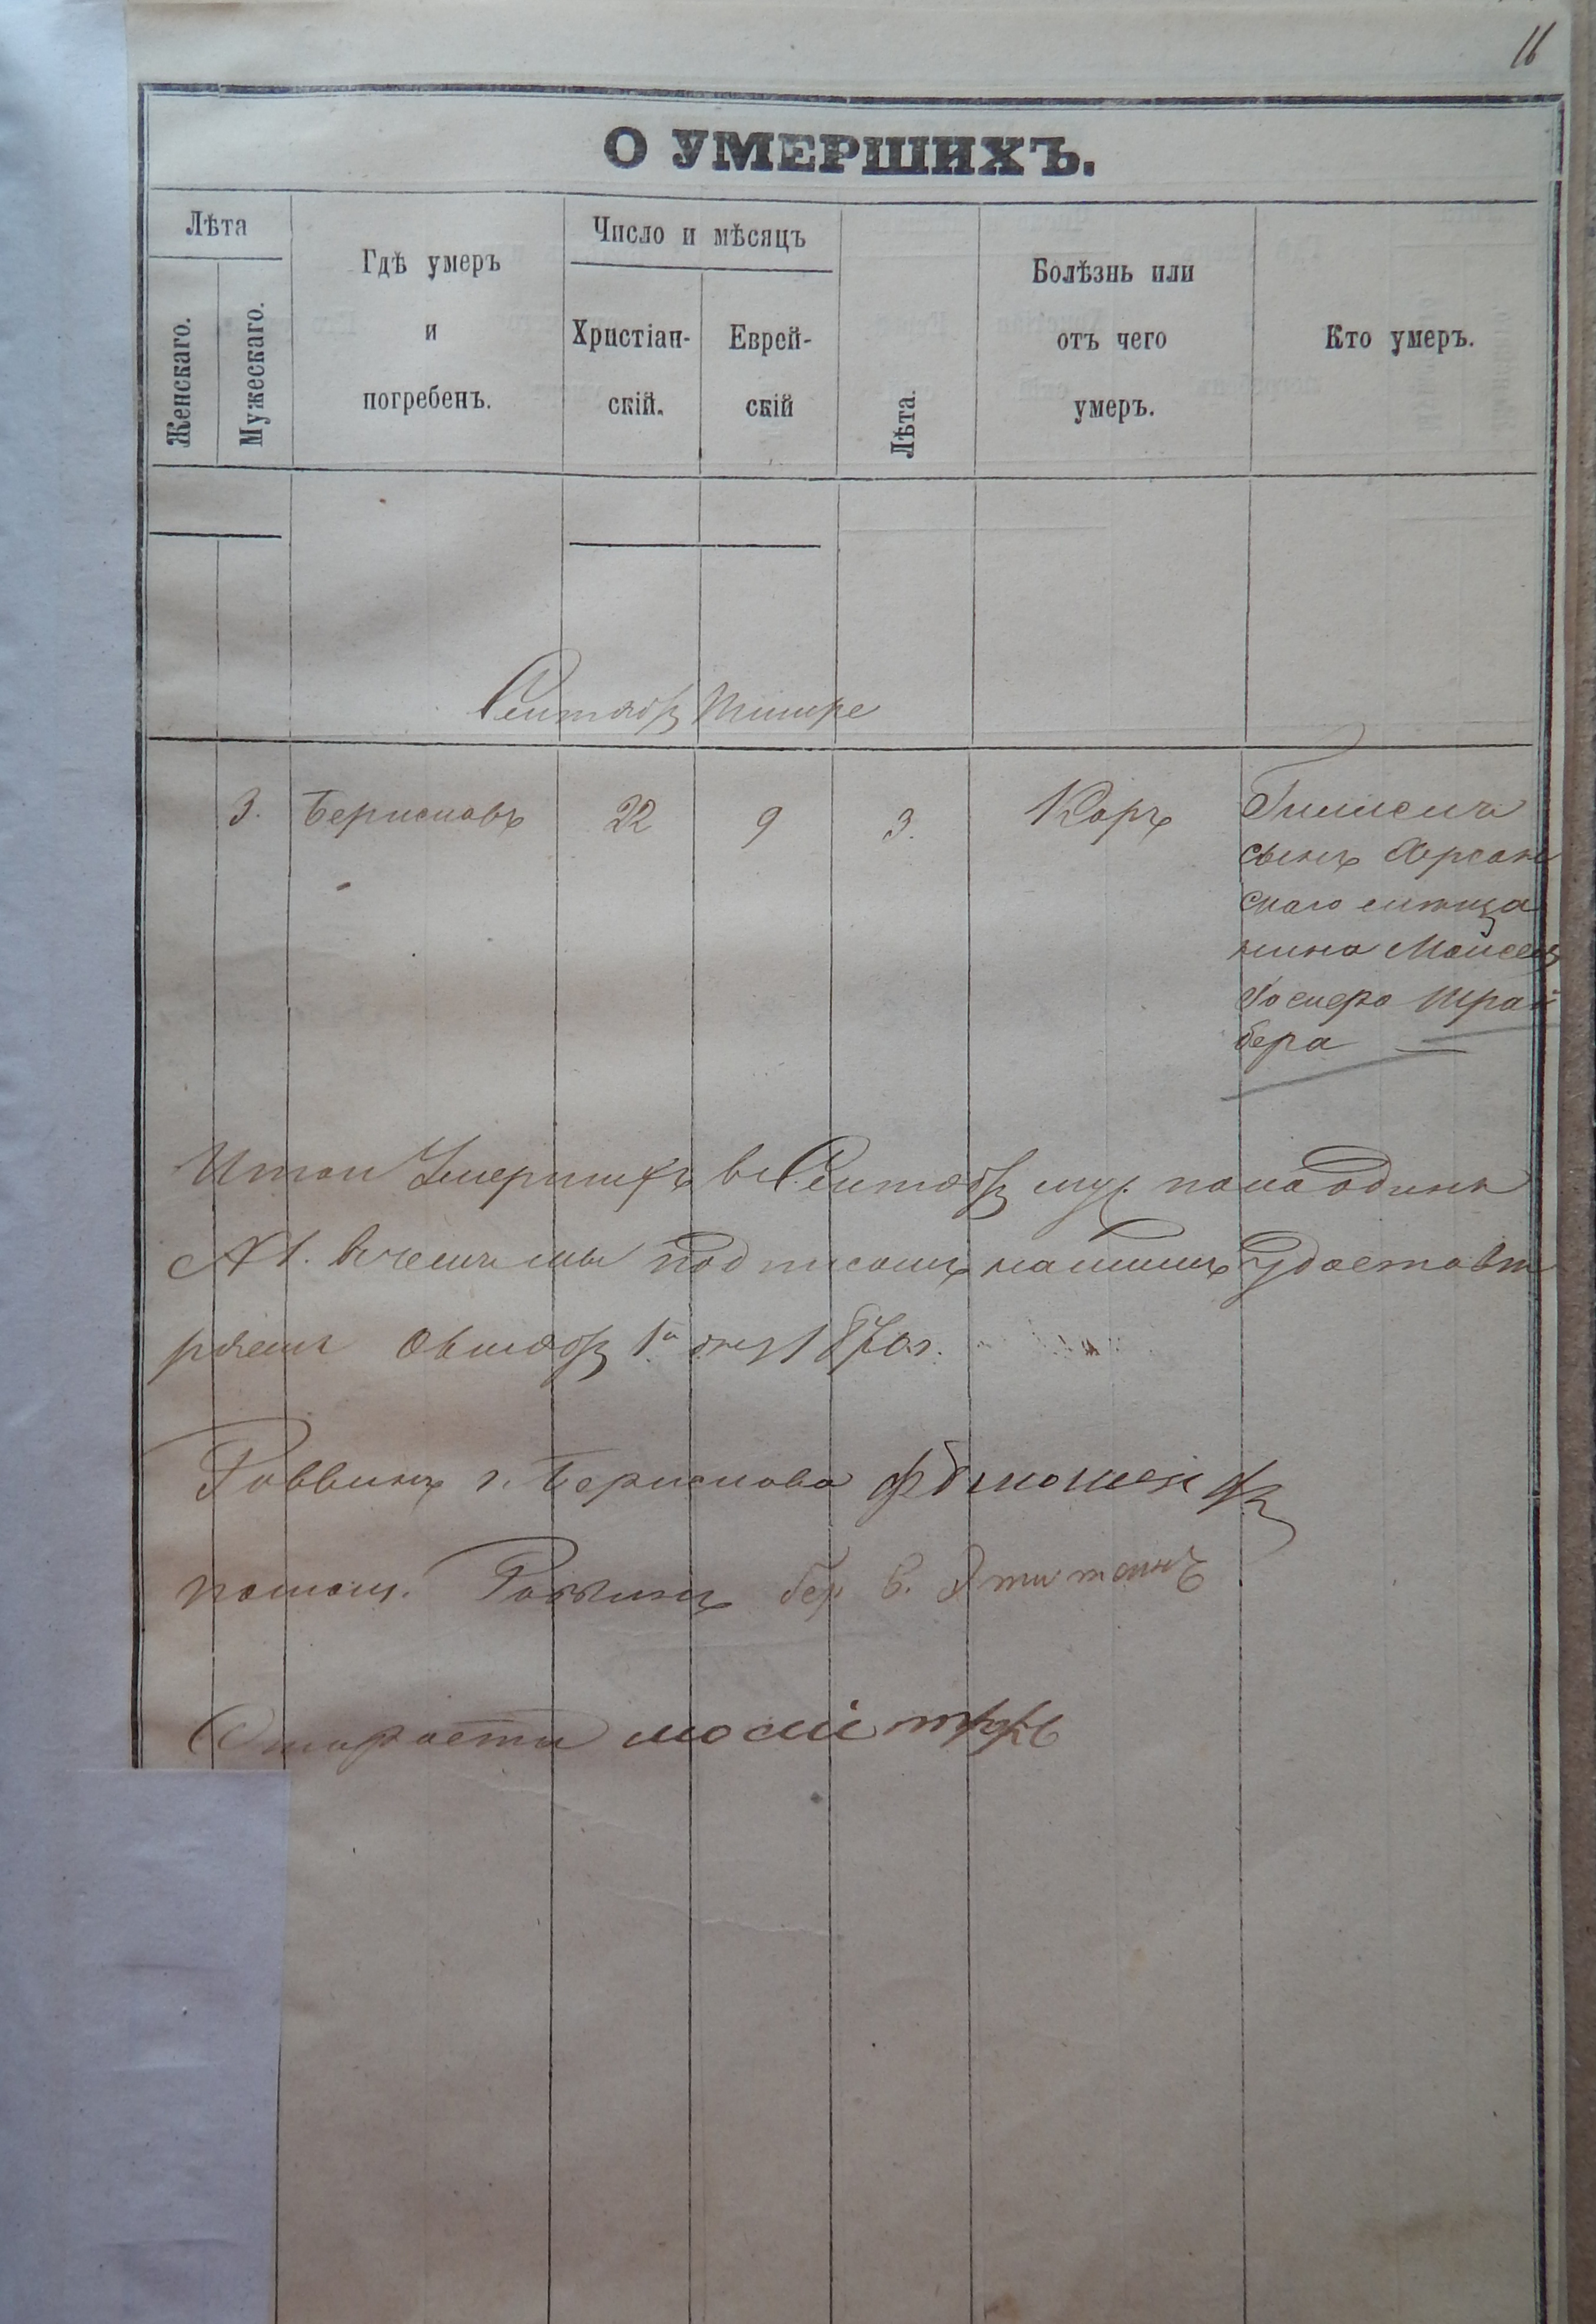 16
О УМЕРШИХЪ.
Лѣта
Женскаго.
Мужескаго.
Гдѣ умеръ
и
погребенъ.
Число и мѣсяцъ
Христіан-
скій.
Еврей-
скій
Лѣта.
Болѣзнь или
отъ чего
умеръ.
Кто умеръ.
Сентябр Тишре
3. Бериславъ 22 9 3. Коръ
сынъ Херсон
скаго мѣща
нина Моисея
Иосифа Шрай
бера
Итого Умершихъ въ Сентябр муж. пола одинъ
№ 1. въ чемъ мы подписомъ нашимъ удостовѣ
ряемъ Октябр 1го дня 1870 г.
Раввинъ г. Берислава
помощ. Раввина бер в.
Староста мосий